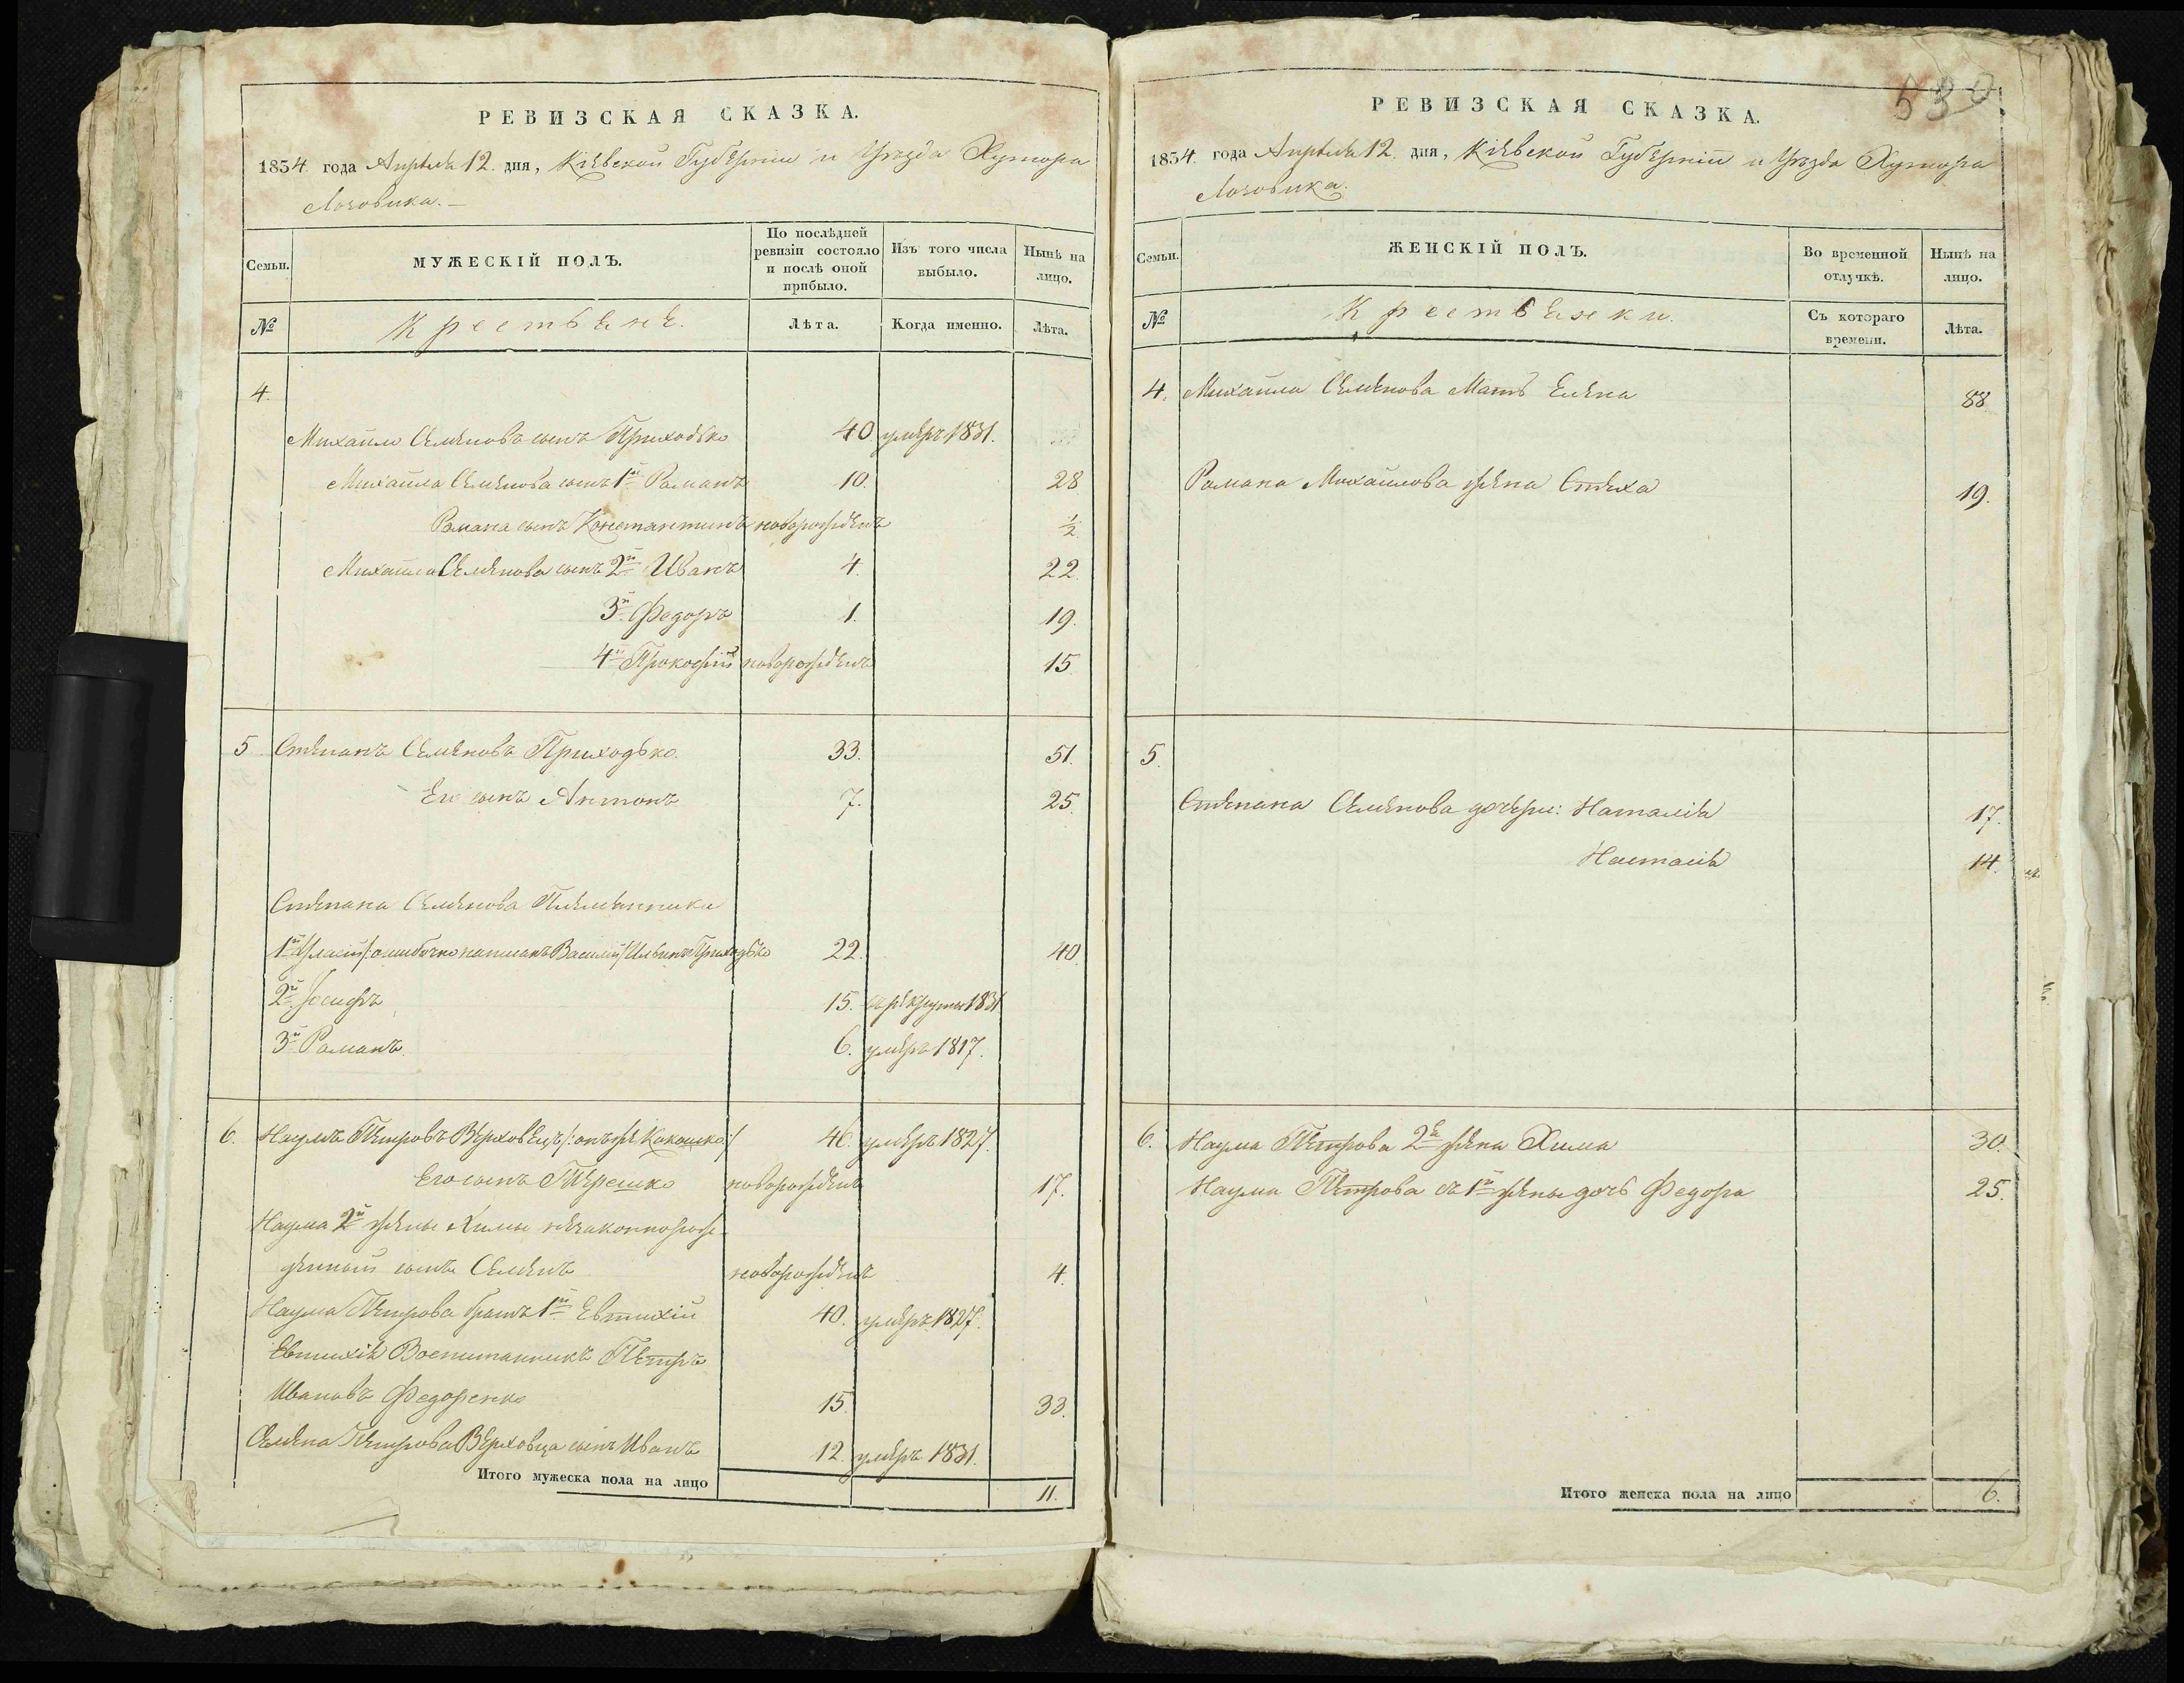 РЕВИЗСКАЯ СКАЗКА.
1834 года Апрѣля 12 дня, Кіевской Губерніи и Уѣзда Хутора
Лозовика.
Семьи.
МУЖЕСКІЙ ПОЛЪ.
По послѣдней ревизіи состояло и послѣ оной прибыло.
Изъ того числа выбыло.
Нынѣ на лицо.
№
Крестьяне.
Лѣта.
Когда именно.
Лѣта.
4.
Михайло Семеновъ сынъ Приходько 40 умеръ 1831.
Михайла Семенова сынъ 1й Романъ 10. 28
Романа сынъ Константинъ новорожденъ ½
Михайла Семенова сынъ 2й Иванъ 4. 22.
3й Федоръ 1. 19.
4й Прокофій новорожденъ 15
5 Степанъ Семеновъ Приходько. 33. 51.
Его сынъ Антонъ 7. 25.
Степана Семенова Племянники
1й Уласій /:ошибочно написанъ Василій/ Ильинъ Приходько 22. 40.
2й Іосифъ 15. въ рекруты 1831
3й Романъ. 6. умеръ 1817.
6. Наумъ Петровъ Верховецъ /:онъ же Кокошко:/ 46. умеръ 1827.
Его сынъ Терешко новорожденъ 17.
Наума 2й жены Химы незаконнорож-
денный сынъ Семенъ новорожденъ 4.
Наума Петрова братъ 1й Евтихій 40. умеръ 1827.
Евтихія Воспитанникъ Петръ
Ивановъ Федоренко 15. 33.
Семена Петрова Верховца сынъ Иванъ 12. умеръ 1831.
Итого мужеска пола на лицо 11.
530
РЕВИЗСКАЯ СКАЗКА.
1834. года Апрѣля 12. дня, Кіевской Губерніи и Уѣзда Хутора
Лозовика.
Семьи.
ЖЕНСКІЙ ПОЛЪ.
Во временной отлучкѣ.
Нынѣ на лицо.
№
Крестьянки.
Съ котораго времени.
Лѣта.
4. Михайла Семенова Мать Елена 88.
Романа Михайлова жена Степха 19.
5.
Степана Семенова дочери: Наталія 17.
Настасія 14.
6. Наума Петрова 2я жена Хима 30.
Наума Петрова съ 1й жены дочь Федора 25.
Итого женска пола на лицо 6.